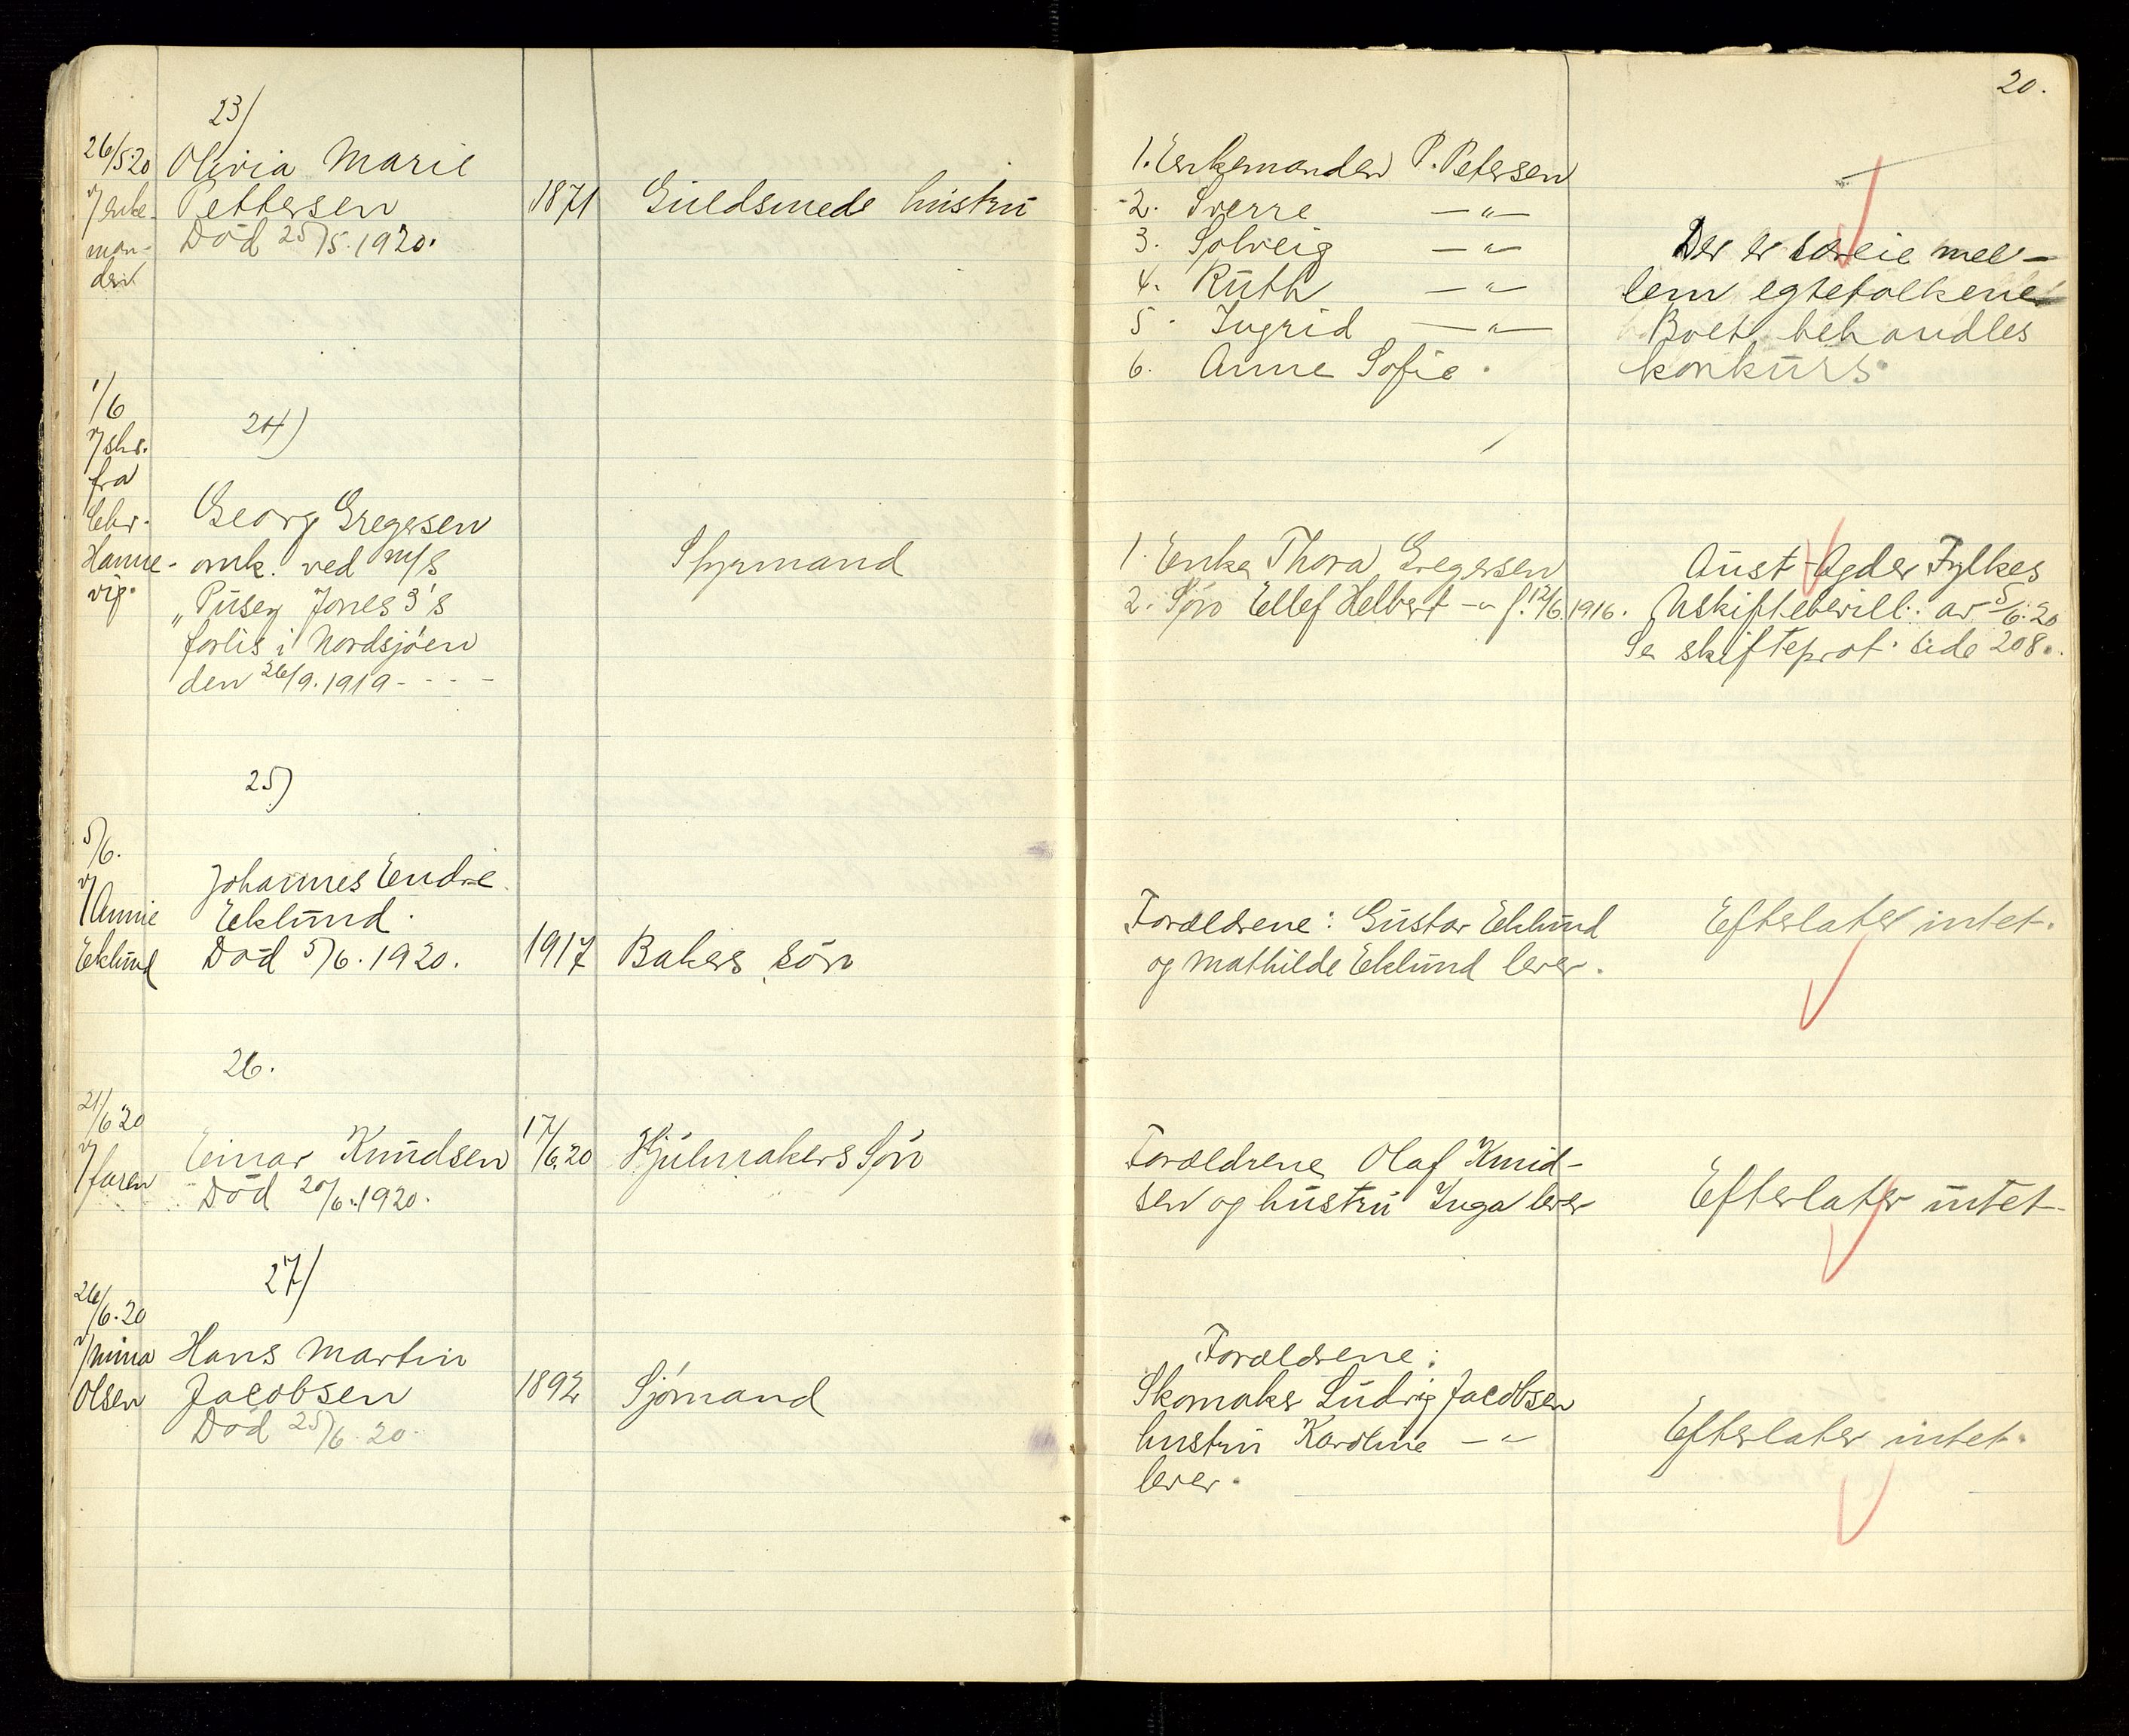 20.
23)
26/5 20
v/ enke-
man-
den
Olivia Marie
Pettersen
Död 25/5. 1920.
1871
Guldsmeds hustru
1. Enkemanden P. Petersen
2. Sverre —"—
3. Solveig —"—
4. Ruth —"—
5. Ingrid —"—
6. Anne Sofie.
Der er særeie mel-
lem egtefolkene
Boet behandles
konkurs.
24)
1/6
v/ skr.
fra
Chr.
Hanne-
vig.
Georg Gregersen
omk. ved m/s
"Pusey Jones 3's
forlis i Nordsjöen
den 26/9. 1919 - - - -
Styrmand
1. Enke Thora Gregersen
2. Sön Ellef Helbert —"— f. 12/6. 1916.
Aust-Agder Fylkes
Uskiftebevill. av 5/6. 20
Se skifteprot. side 208.
25)
5/6.
v/ Annie
Eklund
Johannes Endre
Eklund.
Död 5/6. 1920.
1917
Bakers sön
Forældrene: Gustav Eklund
og Mathilde Eklund lever.
Efterlater intet.
26.
21/6 20
v/ faren
Einar Knudsen
Död 20/6. 1920.
17/6. 20
Hjulmakers Sön
Forældrene Olaf Knud-
sen og hustru Inga lever
Efterlater intet.
27)
26/6. 20
v/ Mina
Olsen
Hans Martin
Jacobsen
Död 25/6. 20.
1892
Sjömand
Forældrene:
Skomaker Ludvig Jacobsen
hustru Karoline —"—
lever.
Efterlater intet.